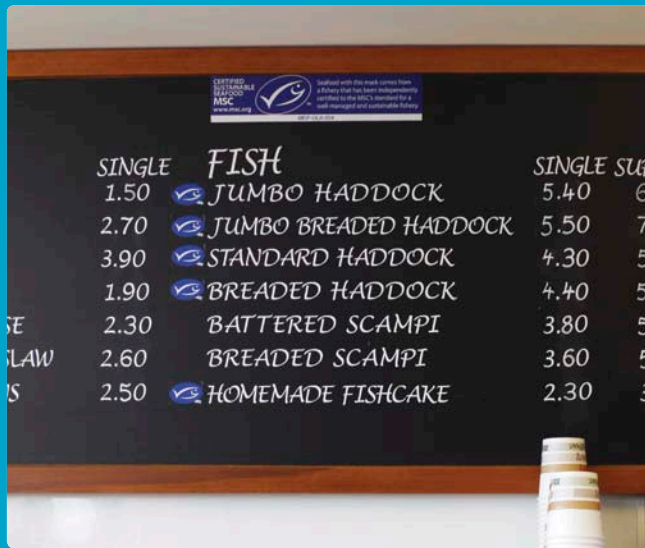 CERTIFIED
SUSTAINABLE
SEAFOOD
MSC
www.msc.org
Seafood with this mark comes from
a fishery that has been independently
certified to the MSC's standard for a
well-managed and sustainable fishery
SINGLE FISH SINGLE
1.50 JUMBO HADDOCK 5.40
2.70 JUMBO BREADED HADDOCK 5.50
3.90 STANDARD HADDOCK 4.30
1.90 BREADED HADDOCK 4.40
2.30 BATTERED SCAMPI 3.80
2.60 BREADED SCAMPI 3.60
2.50 HOMEMADE FISHCAKE 2.30